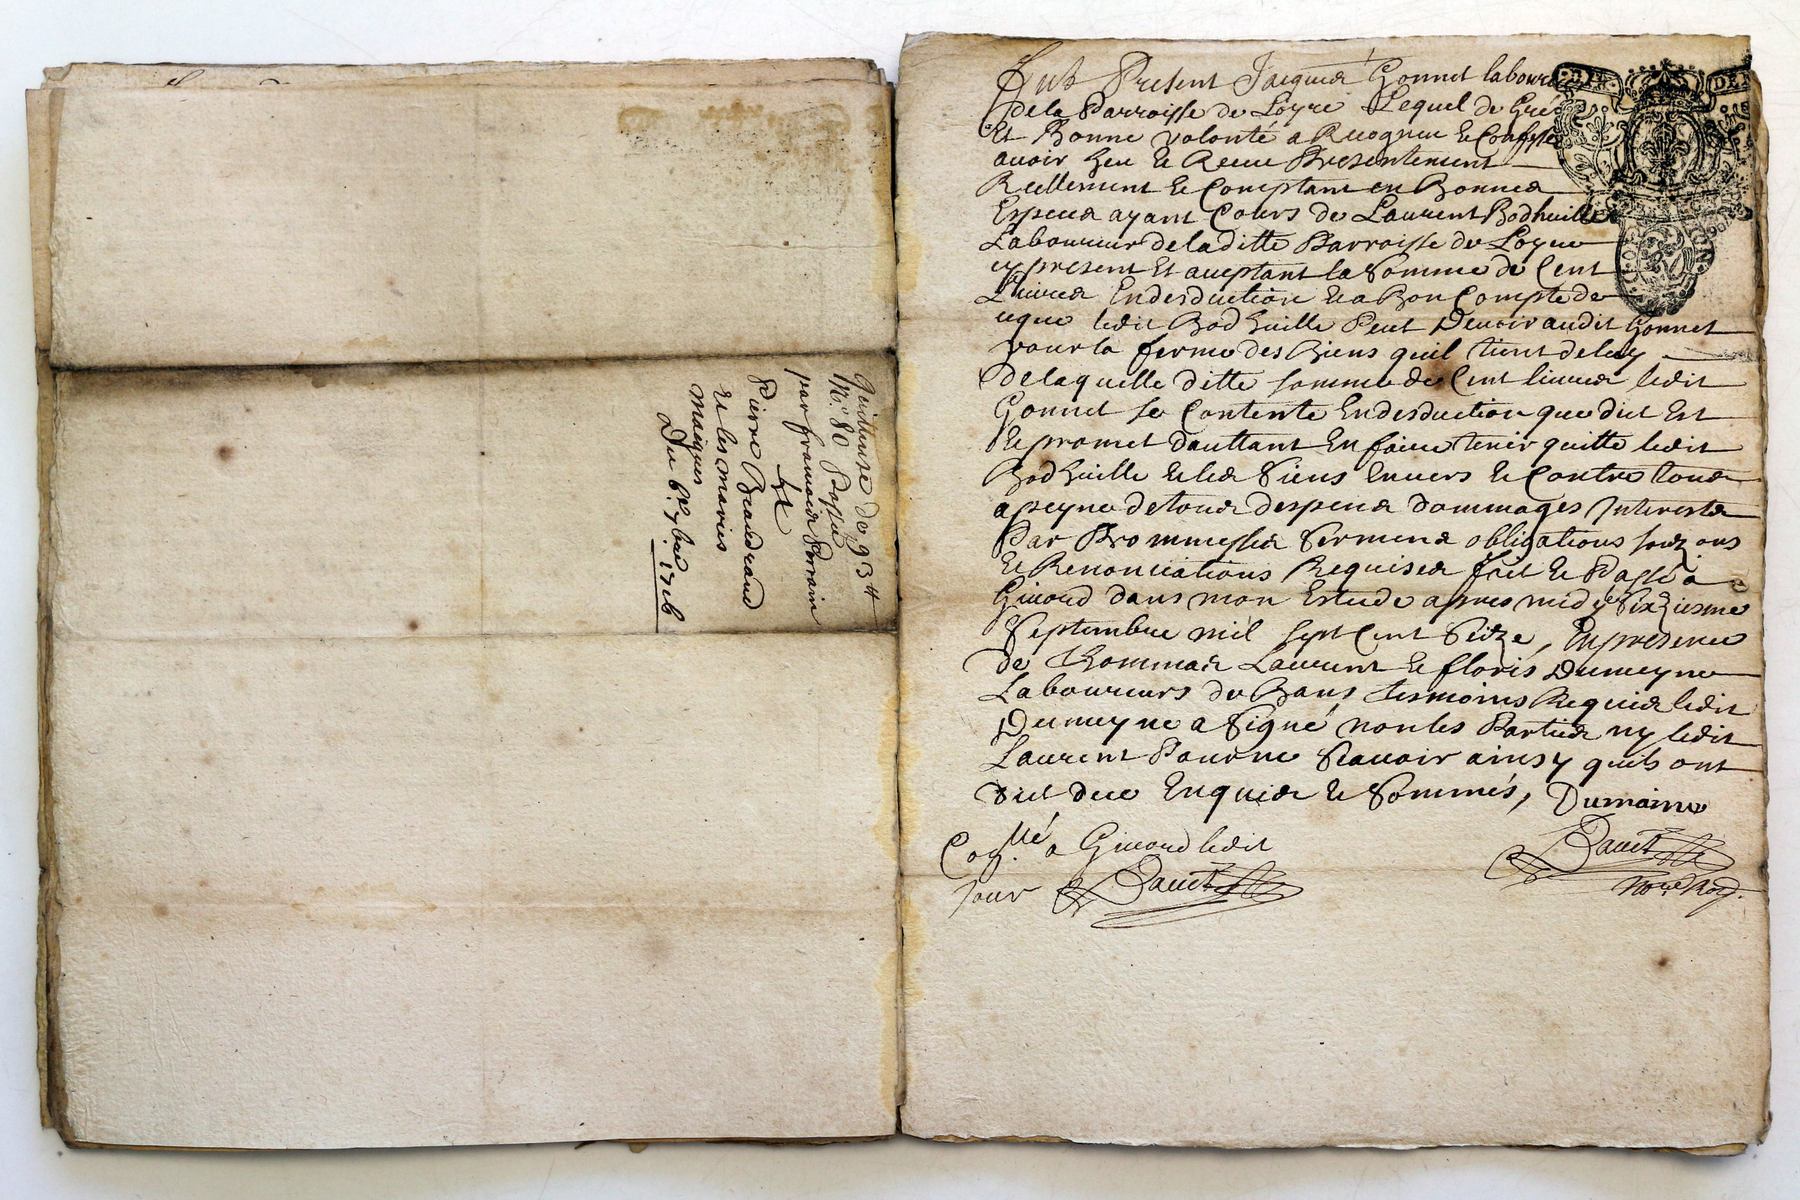 Quittance de 93 tt
par francois Perrin
Et
Pierre Beaudeand
Et les maries
maiques
Du 6e 7bre 1716
Fut Present Jacques Gonnet laboureur
de la Parroisse de Loyre Lequel de Gré
Et Bonne volonté a Recogneu Et Confessé
avoir heu Et Receu Presentement
Reellement Et Comptant en Bonnes
Especes ayant Cours de Laurent Bodhuille
Laboureur de la ditte Parroisse de Loyre
cy present Et aceptant la Somme de Cent
Livres En desduction Et a Bon Compte de
ce que ledit Bodhuille Peut Devoir audit Gonnet
pour la ferme des Biens quil tient de luy
de laquelle ditte somme de Cent livres ledit
Gonnet se Contente En desduction que dict Est
Et promet dauttant En faire tenir quitte ledit
Bodhuille Et les Siens Envers Et Contre tous
a peyne de tous despens dommages Interests
Par Prommesses Sermens obligations
Et Renonciations Requises fait Et Passé a
Givord dans mon Estude apres midy Sixiesme
Septembre mil Sept Cent Seize, En presence
de Thommas Laurent Et floris Dumeyne
Laboureurs de Bans tesmoins Requis ledit
Dumeyne a Signé non les Parties ny ledit
Laurent Pour ne Scavoir ainsy quils ont
dict de ce Enquis Et Sommés, Dumaine
a Givord ledit
jour Davet
Davet
nore Roy.